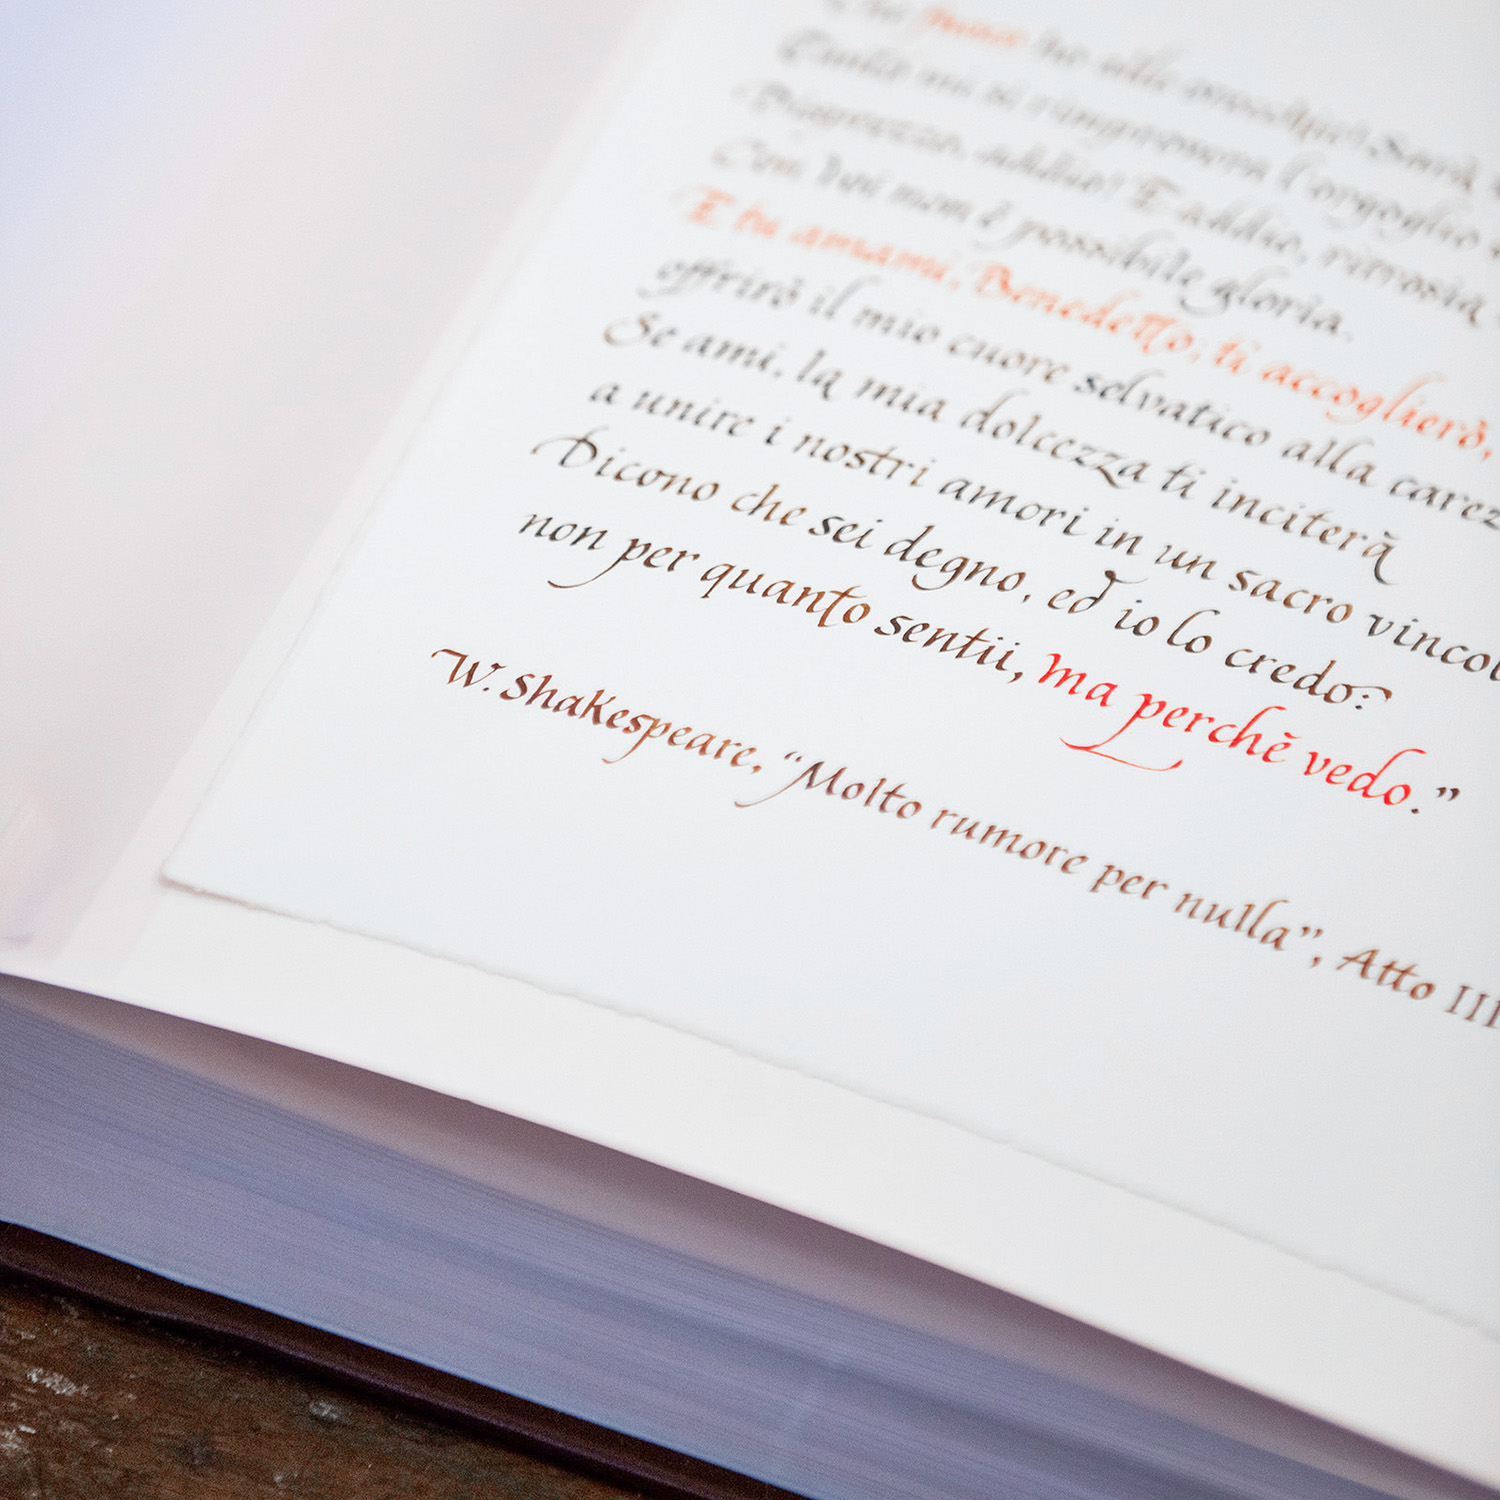 ho alle orecchie? Sarà
Tanto mi si rimprovera l'orgoglio
Disprezzo, addio! E addio, ritrosia
Con voi non è possibile gloria.
E tu amami, Benedetto; ti accoglierò,
offrirò il mio cuore selvatico alla carez
Se ami, la mia dolcezza ti inciterà
a unire i nostri amori in un sacro vincol
Dicono che sei degno, ed io lo credo:
non per quanto sentii, ma perchè vedo.”
W. Shakespeare, “Molto rumore per nulla”, Atto III